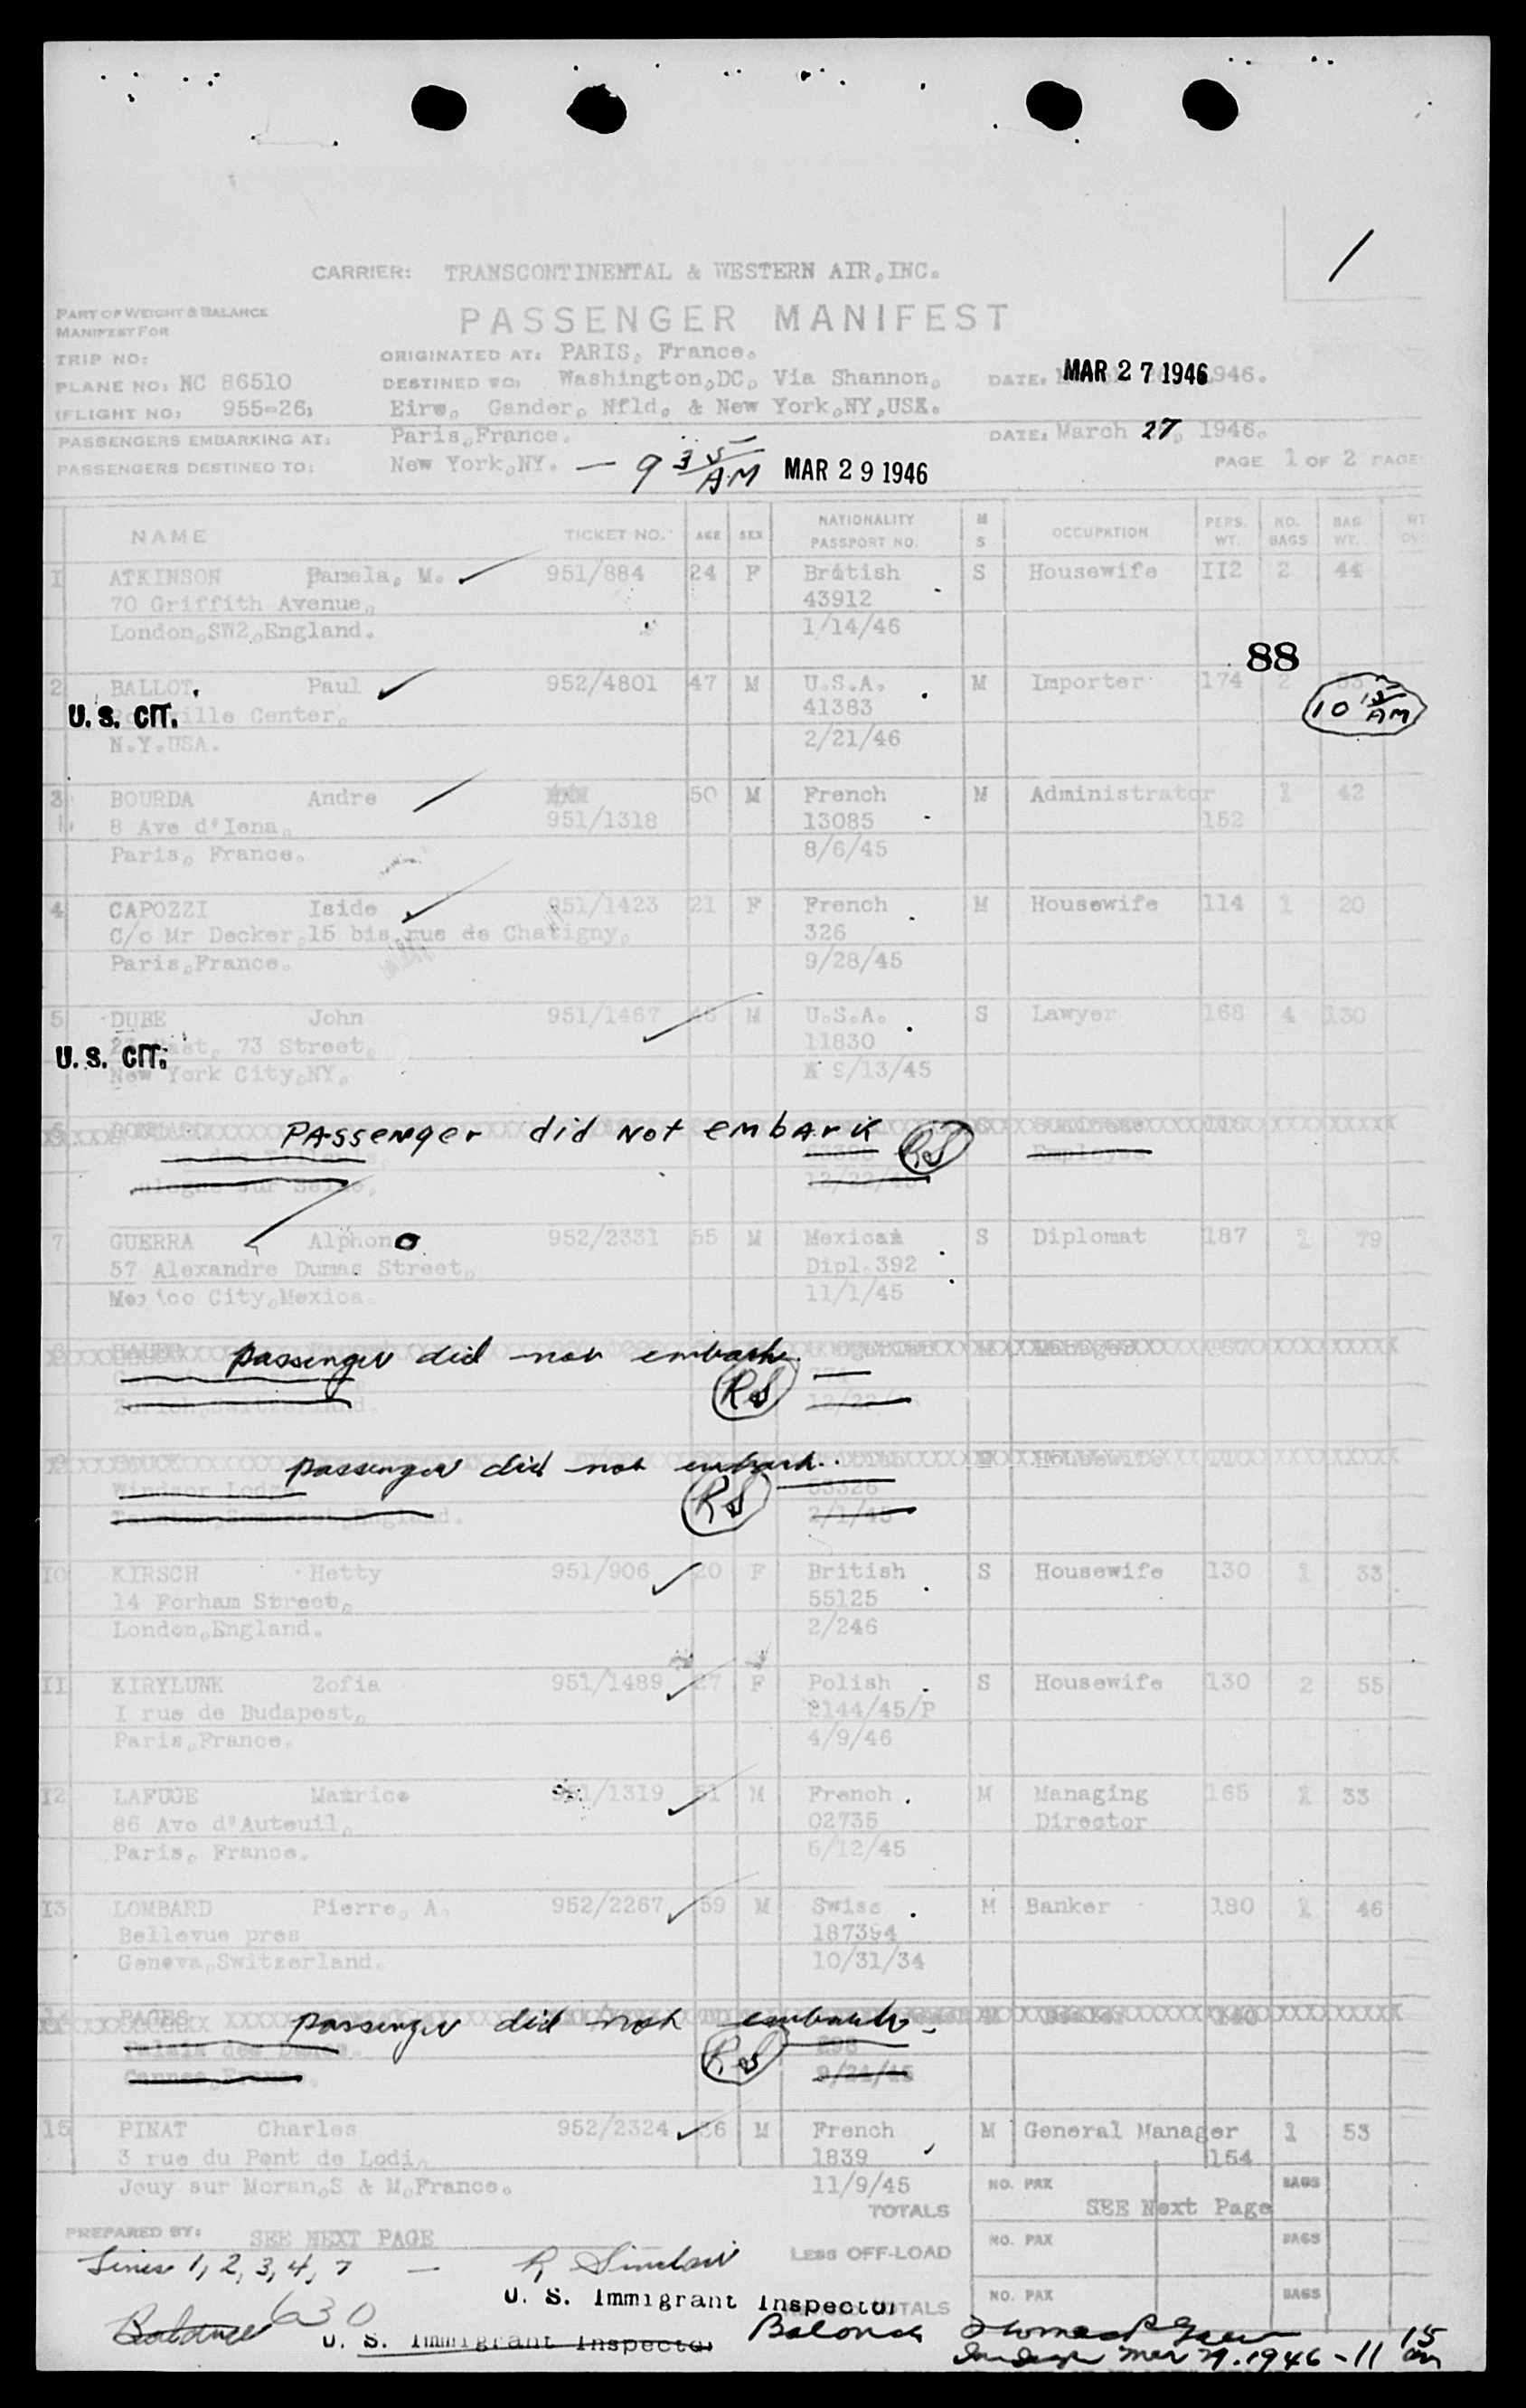 1
CARRIER: TRANSCONTINENTAL & WESTERN AIR, INC.
PART OF WEIGHT & BALANCE
MANIFEST FOR
PASSENGER MANIFEST
TRIP NO:
ORIGINATED AT: PARIS, France.
PLANE NO: NC 86510
DESTINED TO: Washington, DC, Via Shannon,
DATE: MAR 27 1946 1946.
FLIGHT NO: 955-26,
Eire, Gander, Nfld. & New York, NY, USA.
PASSENGERS EMBARKING AT: Paris, France.
DATE: March 27, 1946.
PASSENGERS DESTINED TO: New York, NY. — 9 35 AM MAR 29 1946
PAGE 1 OF 2 PAGE
NAME TICKET NO. AGE SEX NATIONALITY PASSPORT NO. M S OCCUPATION PERS. WT. NO. BAGS BAG WT. WT
1 ATKINSON Pamela, M. 951/884 24 F British S Housewife 112 2 44
70 Griffith Avenue, 43912
London, SW2, England. 1/14/46
88
2 BALLOT, Paul 952/4801 47 M U.S.A. M Importer 174 2
U. S. CIT. ville Center, 41383
10 15 AM
N.Y. USA. 2/21/46
3 BOURDA Andre 50 M French M Administrator 1 42
8 Ave d'Iena, 951/1318 13085 152
Paris, France. 8/6/45
4 CAPOZZI Iside 951/1423 21 F French M Housewife 114 1 20
C/o Mr Decker, 15 bis, rue de Chatigny, 326
Paris, France. 9/28/45
5 DUBE John 951/1467 M U.S.A. S Lawyer 168 4 130
U. S. CIT. East, 73 Street, 11830
New York City, NY. 9/13/45
6 PAssenger did Not embArk RS
Employee
12/22/45
7 GUERRA Alphono 952/2331 55 M Mexican S Diplomat 187 1 79
57 Alexandre Dumas Street, Dipl. 392
Mexico City, Mexico. 11/1/45
8 passenger did not embark. M Manager
RS
Zurich, Switzerland.
9 passenger did not embark. Housewife
Windsor Lodge RS 53326
England. 2/1/45
10 KIRSCH Hetty 951/906 20 F British S Housewife 130 1 33
14 Forham Street, 55125
London, England. 2/246
11 KIRYLUNK Zofia 951/1489 27 F Polish S Housewife 130 2 55
1 rue de Budapest, 2144/45/P
Paris, France. 4/9/46
12 LAFUGE Maurice 951/1319 51 M French M Managing 165 1 33
86 Ave d'Auteuil, 02735 Director
Paris, France. 6/12/45
13 LOMBARD Pierre, A. 952/2267 59 M Swiss M Banker 180 1 46
Bellevue pres 187394
Geneva, Switzerland. 10/31/34
14 PAGES passenger did not embark. 140
Palais des RS 298
Cannes, France. 9/24/45
15 PINAT Charles 952/2324 36 M French M General Manager 1 53
3 rue du Pont de Lodi, 1839 154
Jouy sur Moran, S & M, France. 11/9/45
NO. PAX BAGS
TOTALS SEE Next Page
PREPARED BY: SEE NEXT PAGE
NO. PAX BAGS
Lines 1, 2, 3, 4, 7 — R Sinclair
LESS OFF-LOAD
U. S. Immigrant Inspector
TOTALS NO. PAX BAGS
Balance 630
U. S. Immigrant Inspector
Balance
Mar 29. 1946 - 11 15 am